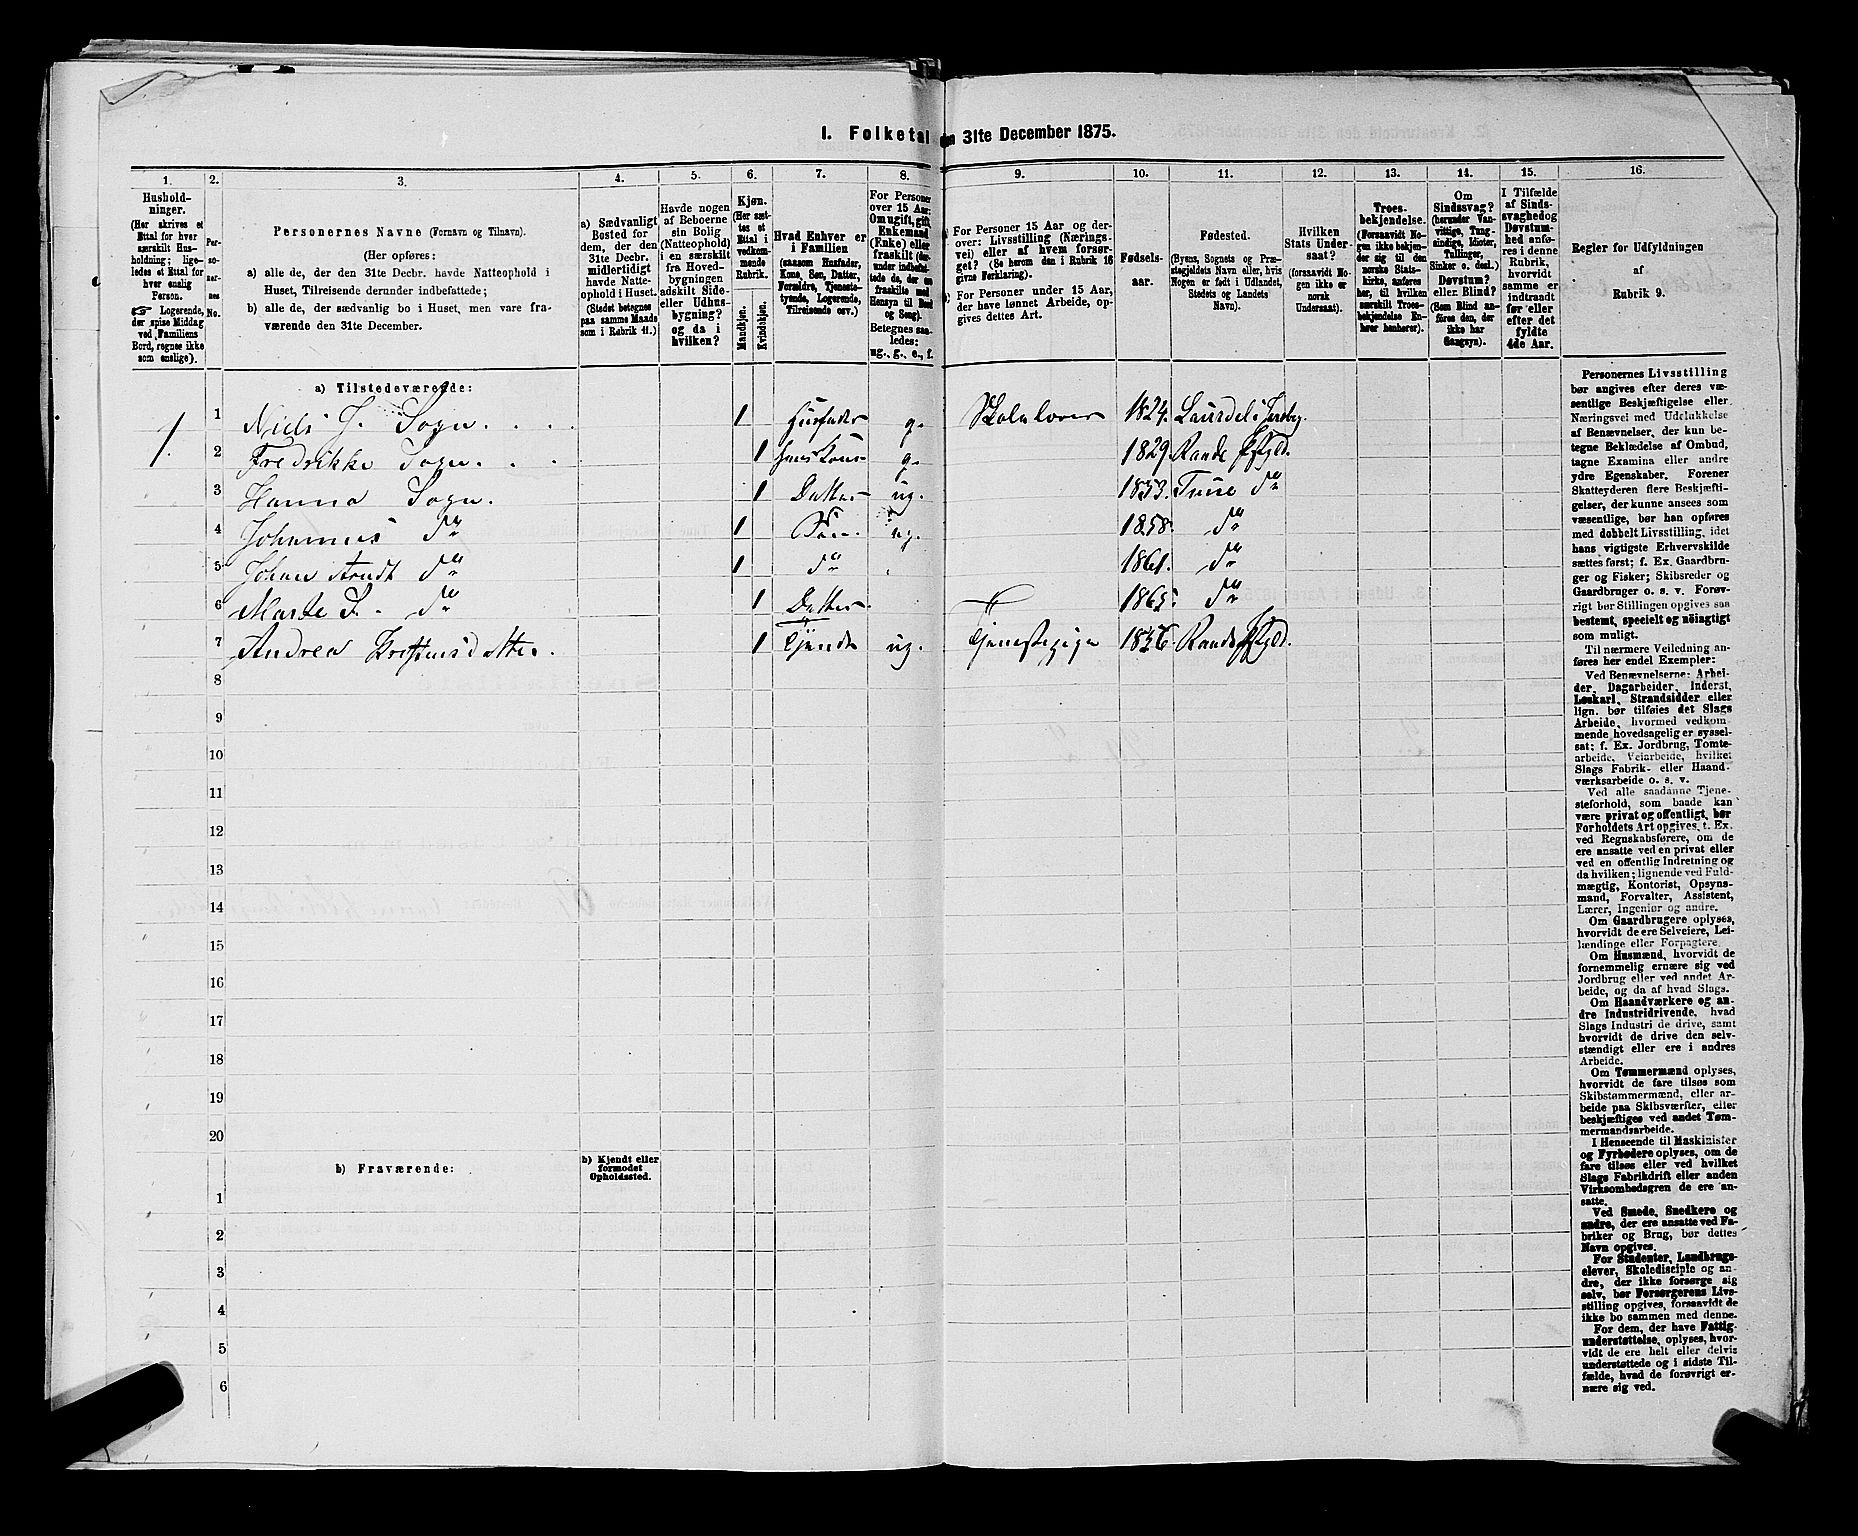 I. Folketal den 31te December 1875.
1.
2.
3.
4.
5.
6.
7.
8.
9.
10.
11.
12.
13.
14.
15.
16.
Hushold-
ninger.
(Her skrives et
Ettal for hver
særskilt Hus-
holdning; lige-
ledes et Ettal for
hver enslig
Person.
☞ Logerende,
der spise Middag
ved Familiens
Bord, regnes ikke
som enslige).
Per-
so-
ner-
nes
No.
Personernes Navne (Fornavn og Tilnavn).
(Her opføres:
a) alle de, der den 31te Decbr. havde Natteophold i
Huset, Tilreisende derunder indbefattede;
b) alle de, der sædvanlig bo i Huset, men vare fra-
værende den 31te December.
a) Sædvanligt
Bosted for
dem, der den
31te Decbr.
midlertidigt
havde Natte-
ophold i Huset.
(Stedet betegnes
paa samme Maade
som i Rubrik 11.)
Havde nogen
af Beboerne
sin Bolig
(Natteophold)
i en særskilt
fra Hoved-
bygningen
adskilt Side-
eller Udhus-
bygning?
og da i
hvilken?
Kjøn.
(Her sæt-
tes et
Ettal i
vedkom-
mende
Rubrik.
Mandkjøn.
Kvindekjøn.
Hvad Enhver er
i Familien
(saasom Husfader,
Kone, Søn, Datter,
Forældre, Tjeneste-
tyende, Logerende,
Tilreisende osv.)
For Personer
over 15 Aar:
Om ugift, gift,
Enkemand
(Enke) eller
fraskilt (der-
under indbefat-
tede de, der ere
fraskilte med
Hensyn til Bord
og Seng).
Betegnes saa-
ledes:
ug., g., e., f.
For Personer 15 Aar og der-
over: Livsstilling (Nærings-
vei) eller af hvem forsør-
get? (Se herom den i Rubrik 16
givne Forklaring).
For Personer under 15 Aar,
der have lønnet Arbeide, op-
gives dettes Art.
Fødsels-
aar.
Fødested.
(Byens, Sognets og Præ-
stegjeldets Navn eller, hvis
Nogen er født i Udlandet,
Stedets og Landets
Navn).
Hvilken
Stats Under-
saat?
(forsaavidt No-
gen ikke er
norsk
Undersaat).
Troes-
bekjendelse.
(Forsaavidt No-
gen ikke bekjen-
der sig til den
norske Stats-
kirke, anføres
her, til hvilken
særskilt Troes-
bekjendelse En-
hver henhører).
Om
Sindssvag?
(herunder Van-
vittige, Tung-
sindige, Idioter,
Tullinger,
Sinker o. desl.)
Døvstum?
eller Blind?
(Som Blind an-
føres den, der
ikke har
Gangsyn).
I Tilfælde
af Sinds-
svaghed og
Døvstum-
hed anfø-
res i denne
Rubrik,
hvorvidt
samme er
indtraadt
før eller
efter det
fyldte
4de Aar.
Regler for Udfyldningen
af
Rubrik 9.
a) Tilstedeværende:
1. 1 Niels J. Sogn. 1 Husfader g. Skolelærer 1824. Laurdal i
2 Fredrikke Sogn. 1 Huus Kone g. 1829. Rande Pstgld.
3 Hanna Sogn. 1 Datter ug. 1853. do
4 Johannes do 1 Søn ug. 1858. do
5 Johan Arndt do 1 do 1861. do
6 Marte S. do 1 Datter. 1865. do
7 Andrea 1 Tjende ug. Tjenestepige 1856. Rande Pstgld.
8
9
10
11
12
13
14
15
16
17
18
19
20
b) Fraværende:
b) Kjendt eller
formodet
Opholdssted.
1
2
3
4
5
6
Personernes Livsstilling
bør angives efter deres væ-
sentlige Beskjæftigelse eller
Næringsvei med Udelukkelse
af Benævnelser, der kun be-
tegne Beklædelse af Ombud,
tagne Examina eller andre
ydre Egenskaber. Forener
Skatteyderen flere Beskjæfti-
gelser, der kunne ansees som
væsentlige, bør han opføres
med dobbelt Livsstilling, idet
hans vigtigste Erhvervskilde
sættes først; f. Ex. Gaardbru-
ger og Fisker; Skibsreder og
Gaardbruger o. s. v. Forøv-
rigt bør Stillingen opgives saa
bestemt, specielt og nøiagtigt
som muligt.
Til nærmere Veiledning an-
føres her endel Exempler:
Ved Benævnelserne: Arbei-
der, Dagarbeider, Inderst,
Løskarl, Strandsidder eller
lign. bør tilføies det Slags
Arbeide, hvormed vedkom-
mende hovedsagelig er syssel-
sat; f. Ex. Jordbrug, Tomte-
arbeide, Veiarbeide, hvilket
Slags Fabrik- eller Haand-
værksarbeide o. s. v.
Ved alle saadanne Tjene-
steforhold, som baade kan
være privat og offentligt, bør
Forholdets Art opgives, t. Ex.
ved Regnskabsførere, om de
ere ansatte ved en privat eller
ved en offentlig Indretning og
da hvilken; lignende ved Fuld-
mægtig, Kontorist, Opsyns-
mand, Forvalter, Assistent,
Lærer, Ingeniør og andre.
Om Gaardbrugere oplyses,
hvorvidt de ere Selveiere, Lei-
lændinge eller Forpagtere.
Om Husmænd, hvorvidt de
fornemmelig ernære sig ved
Jordbrug eller ved andet Ar-
beide, og da af hvad Slags.
Om Haandværkere og an-
dre Industridrivende, hvad
Slags Industri de drive, samt
hvorvidt de drive den selv-
stændigt eller ere i andres
Arbeide.
Om Tømmermænd oplyses,
hvorvidt de fare tilsøs som
Skibstømmermænd, eller ar-
beide paa Skibsværfter, eller
beskjæftiges ved andet Tøm-
mermandsarbeide.
I Henseende til Maskinister
og Fyrbødere oplyses, om de
fare tilsøs eller ved hvilket
Slags Fabrikdrift eller anden
Virksomhedsgren de ere an-
satte.
Ved Smede, Snedkere og
andre, der ere ansatte ved Fa-
briker og Brug, bør dettes
Navn opgives.
For Studenter, Landbrugs-
elever, Skoledisciple og an-
dre, der ikke forsørge sig
selv, bør Forsørgerens Livs-
stilling opgives, forsaavidt de
ikke bo sammen med denne.
For dem, der have Fattig-
understøttelse, oplyses, hvor-
vidt de ere helt eller delvis
understøttede og i sidste Til-
fælde, hvad de forøvrigt er-
nære sig ved.